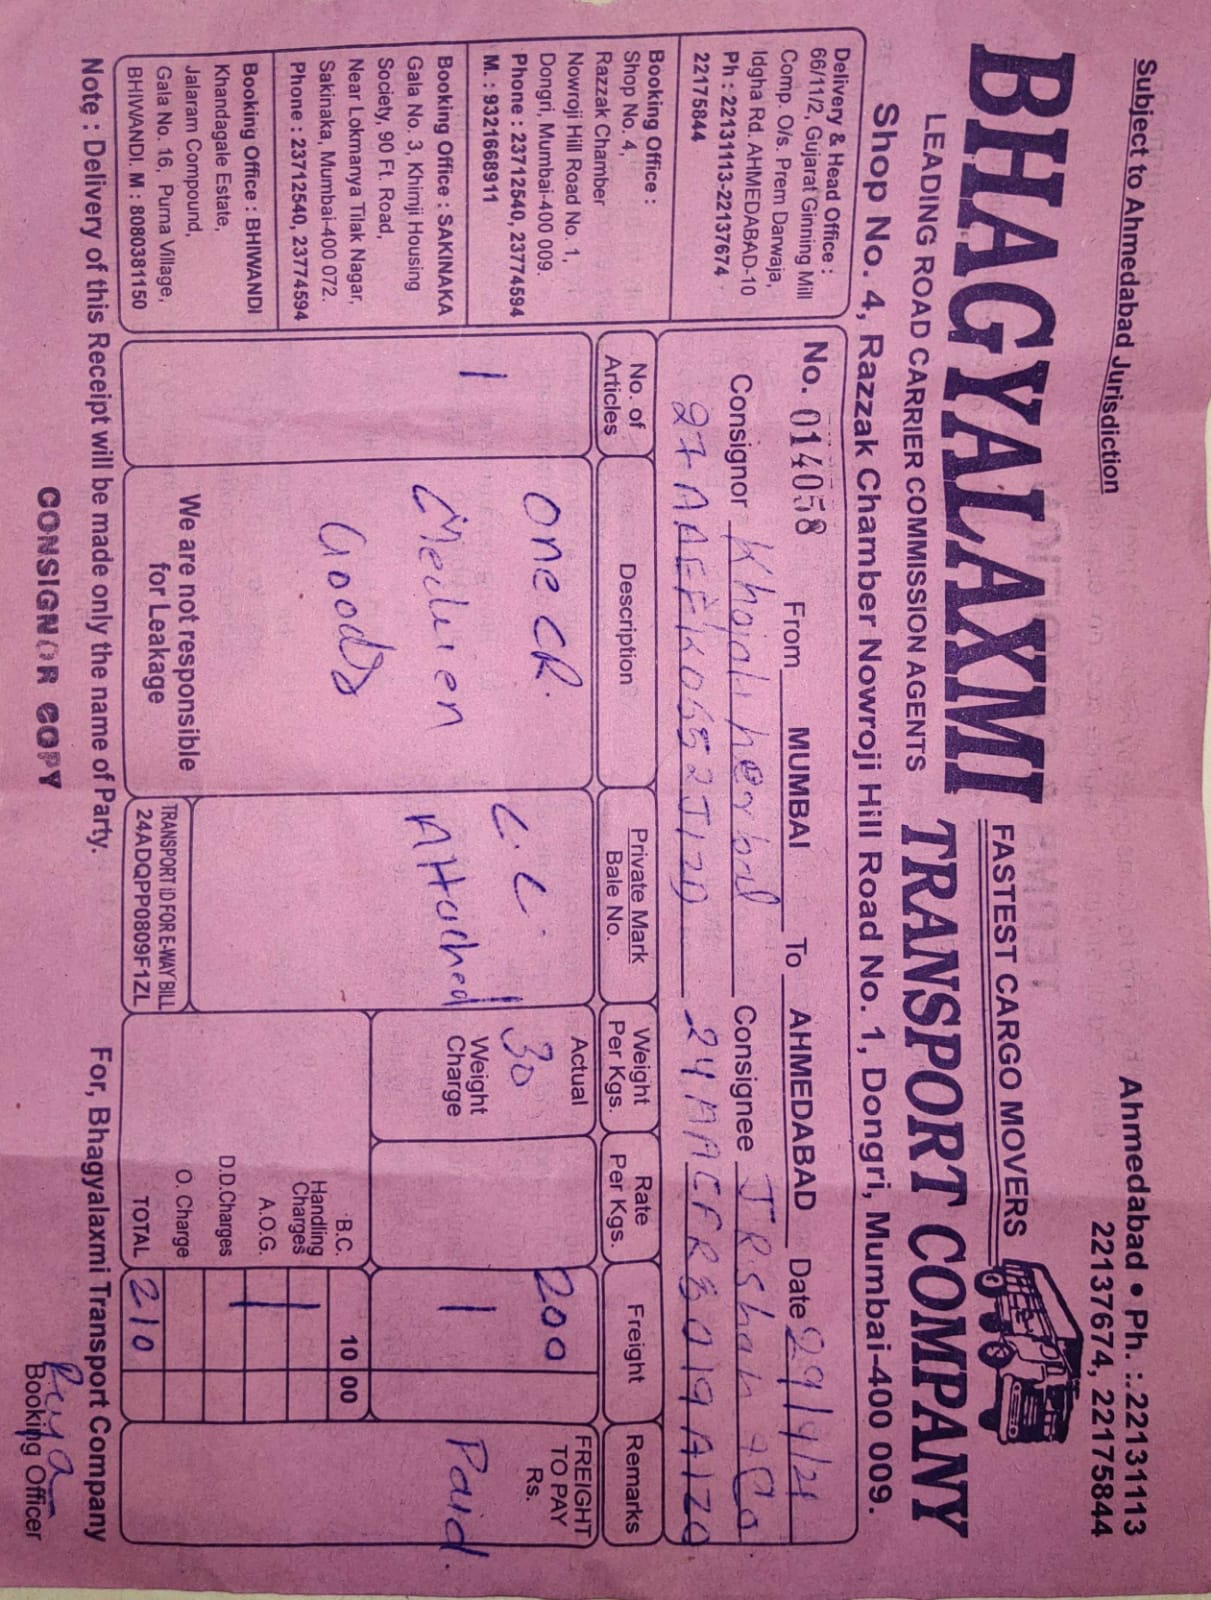 Subject to Ahmedabad Jurisdiction
Ahmedabad • Ph. :.22131113
22137674, 22175844
BHAGYALAXMI
FASTEST CARGO MOVERS
TRANSPORT COMPANY
LEADING ROAD CARRIER COMMISSION AGENTS
Shop No. 4, Razzak Chamber Nowroji Hill Road No. 1, Dongri, Mumbai-400 009.
Delivery & Head Office :
66/11/2, Gujarat Ginning Mill
Comp. O/s. Prem Darwaja,
Idgha Rd, AHMEDABAD-10
Ph : 22131113-22137674
22175844
Booking Office :
Shop No. 4,
Razzak Chamber
Nowroji Hill Road No. 1,
Dongri, Mumbai-400 009.
Phone : 23712540, 23774594
M. : 9321668911
Booking Office : SAKINAKA
Gala No. 3, Khimji Housing
Society, 90 Ft. Road,
Near Lokmanya Tilak Nagar,
Sakinaka, Mumbai-400 072.
Phone : 23712540, 23774594
Booking Office : BHIWANDI
Khandagale Estate,
Jalaram Compound,
Gala No. 16, Purna Village,
BHIVANDI. M : 8080381150
No. 014058 From MUMBAI To AHMEDABAD Date
Consignor Khojati herbal Consignee J R Shah & Co
No. of Articles
Description
Private Mark Bale No.
Weight Per Kgs.
Rate Per Kgs.
Freight
Remarks
1
one CR.
Goods
C.C.
Attached
Actual
30
Weight Charge
200
FREIGHT
TO PAY
Rs.
Paid.
B.C. 10 00
Handling Charges
A.O.G.
D.D.Charges
O. Charge
TOTAL 210
We are not responsible
for Leakage
TRANSPORT ID FOR E-WAY BILL
24ADQPP0809F1ZL
Note : Delivery of this Receipt will be made only the name of Party.
For, Bhagyalaxmi Transport Company
CONSIGNOR COPY
Booking Officer